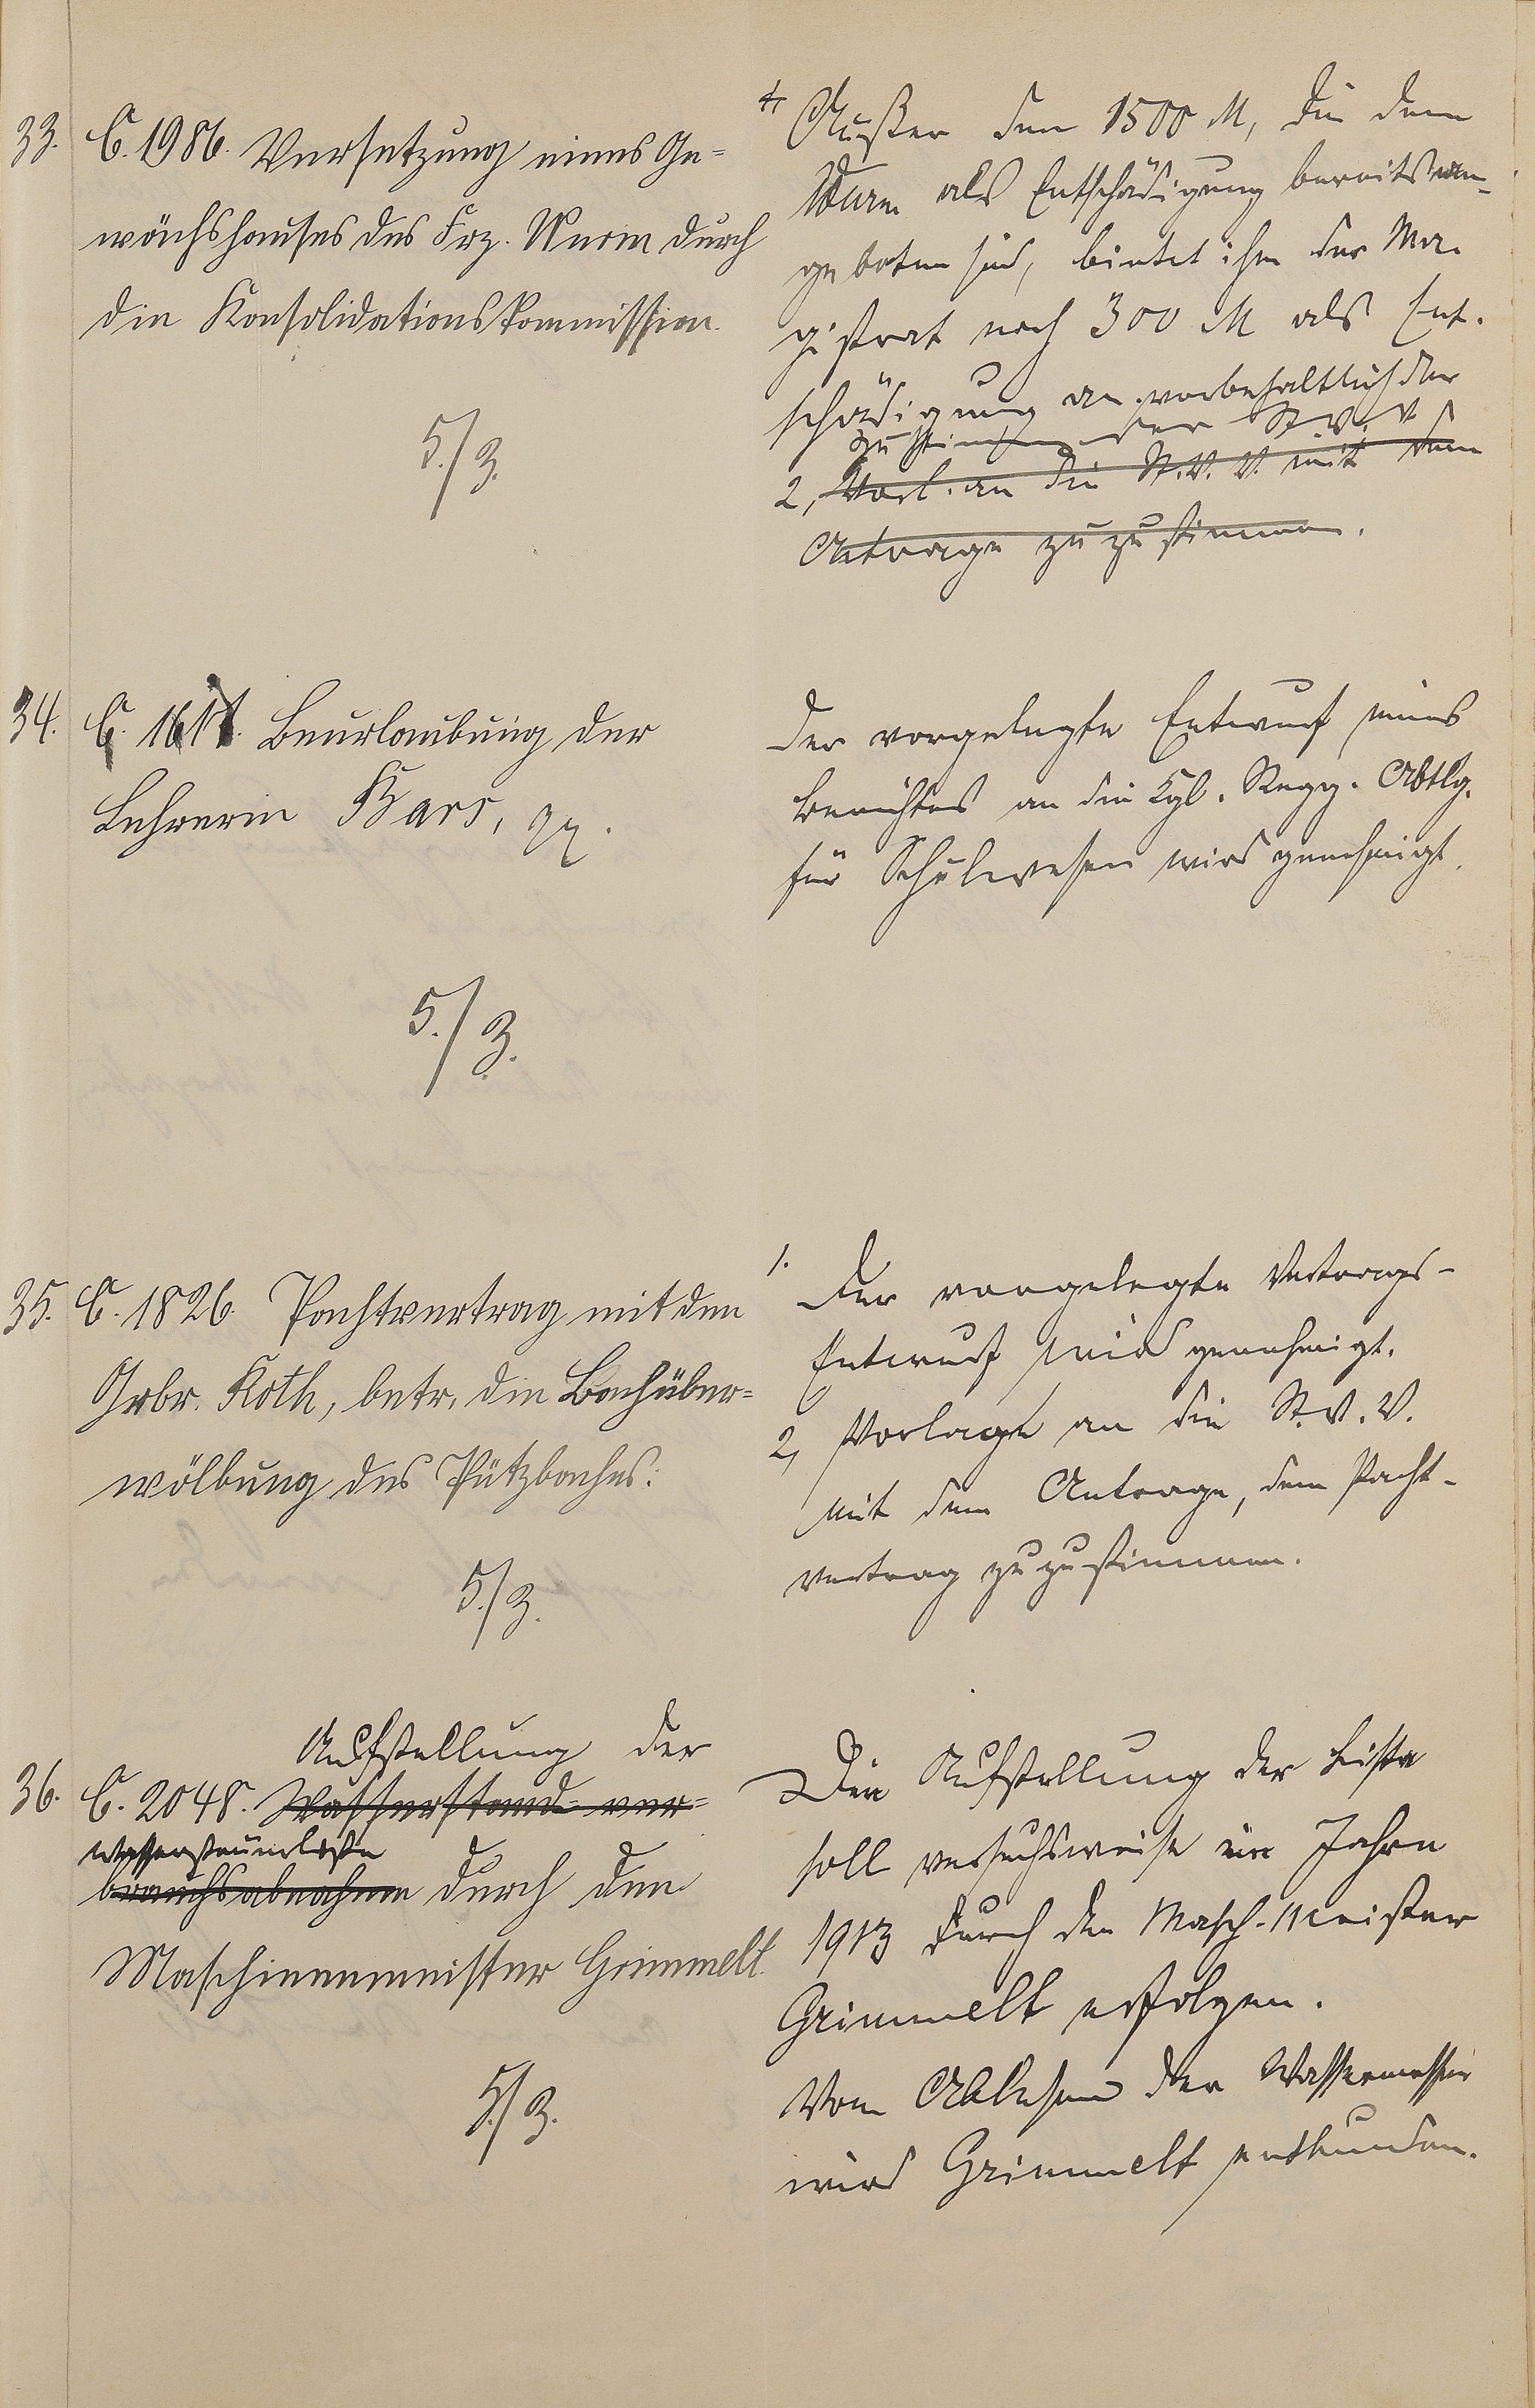 33. C. 1986. Versetzung eines Ge-
wächshauses des Frz. Wurm durch
die Konsolidationskommission.
5./3.
Außer den 1500 M, die dem
Wurm als Entschädigung bereits an-
geboten sind, bietet ihm der Ma-
gistrat noch 300 M als Ent-
schädigung an vorbehaltlich der
Zustimmung der St. V. V.
2, Vorl. an die St. V. V. mit dem
Antrage zuzustimmen.
34. C. Beurlaubung der
Lehrerin
5./3.
Der vorgelegte Entwurf eines
Berichtes an die Kgl. Regg. Abtlg.
für Schulwesen wird genehmigt.
35. C. 1826. Pachtvertrag mit den
Gebr. Koth, betr. die Bachüber-
wölbung des Pützbaches.
5./3.
1. Der vorgelegte Vertrags-
Entwurf wird genehmigt.
2, Vorlage an die St. V. V.
mit dem Antrage, dem Pacht-
vertrag zuzustimmen.
Aufstellung der
36. C. 2048. Wasserstand- ver-
brauchsabnahme durch den
Maschinenmeister Grimmelt.
5./3.
Die Aufstellung der Liste
soll versuchsweise im Jahre
1913 durch den Masch.-Meister
Grimmelt erfolgen.
Vom Ablesen der Wassermesser
wird Grimmelt entbunden.